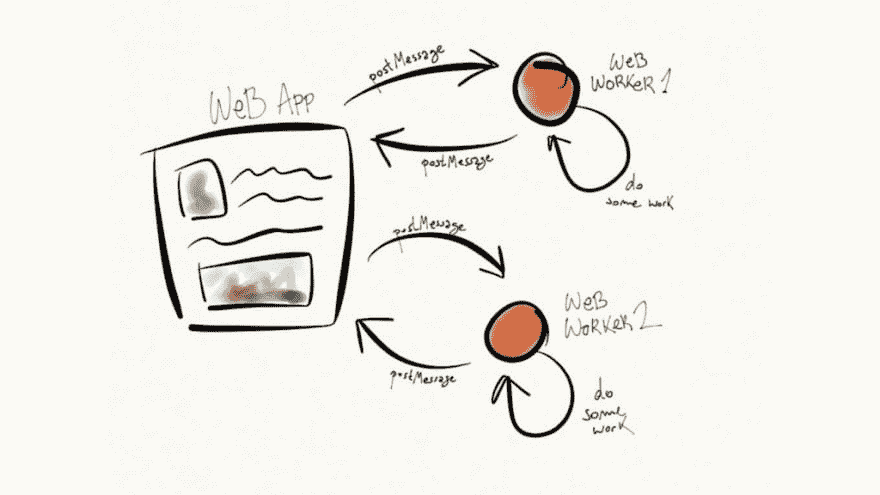 WeB App
postMessage
WeB
WORKER 1
postMessage
do
some work
postMessage
WeB
WORKeR 2
postMessage
do
some
work